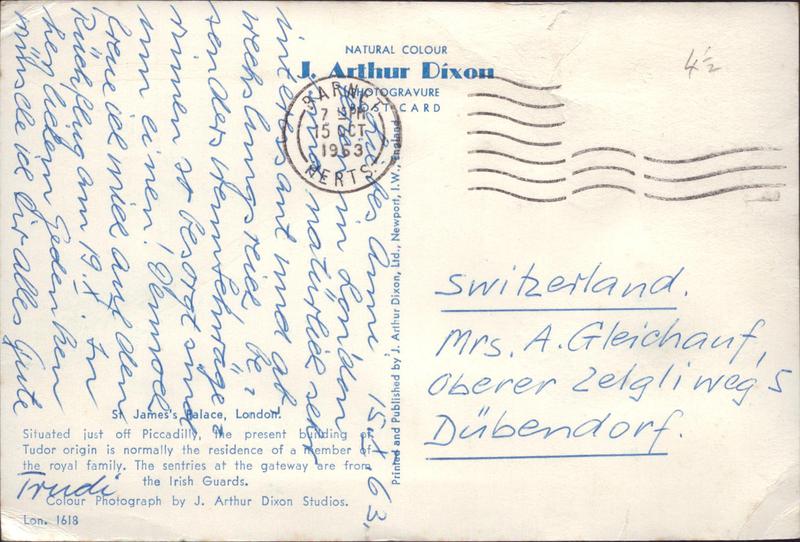 NATURAL COLOUR
J. Arthur Dixon
PHOTOGRAVURE
POST CARD
4½
BARNET
7 PM
15 OCT
1963
HERTS.
Liebes Anni 15.X.63.
in London
natürlich sehr
interessant und ab
wechslungsreich. Be=
sonders wenn
rinnen so besorgt sind
um einen! Dennoch
freue ich mich auf den
Rückflug am 19.X. In
herzlichem Gedenken
wünsche ich Dir alles Gute
Trudi
Printed and Published by J. Arthur Dixon, Ltd., Newport, I.W., England.
Switzerland.
Mrs. A. Gleichauf,
Oberer Zelgliweg 5
Dübendorf.
St James's Palace, London.
Situated just off Piccadilly, the present building
Tudor origin is normally the residence of a member of
the royal family. The sentries at the gateway are from
the Irish Guards.
Colour Photograph by J. Arthur Dixon Studios.
Lon. 1618